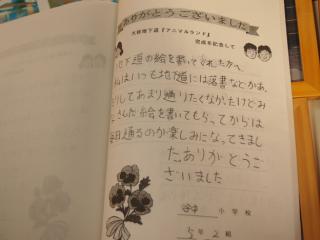 ありがとうございました
大谷地下道『アニマルランド』
完成を記念して
地下道の絵を書いてくれた方へ
私はいつも地下道には落書などがあ
たりしてあまり通りたくなかたけどみ
なさんに絵を書いてもらってからは
毎日通るのが楽しみになってきまし
た。ありがとうご
ざいました
小学校
5年2組